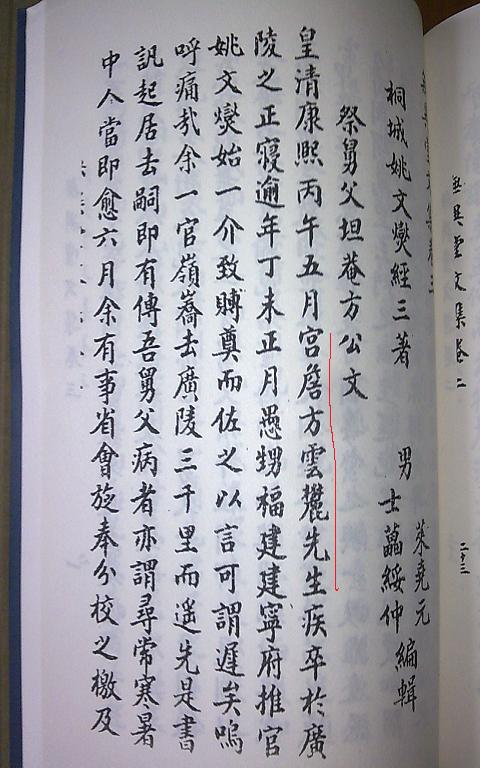 無異堂文集卷二
二十三
桐城姚文燮經三著
男
士藟綏仲
萊堯元
編輯
祭舅父坦菴方公文
皇清康熙丙午五月宫詹方雲麓先生疾卒於廣
陵之正寢逾年丁未正月愚甥福建建寧府推官
姚文燮始一介致賻奠而佐之以言可謂遲矣嗚
呼痛哉余一官嶺嶠去廣陵三千里而遥先是書
訊起居去嗣即有傳吾舅父病者亦謂尋常寒暑
中人當即愈六月余有事省會旋奉分校之檄及